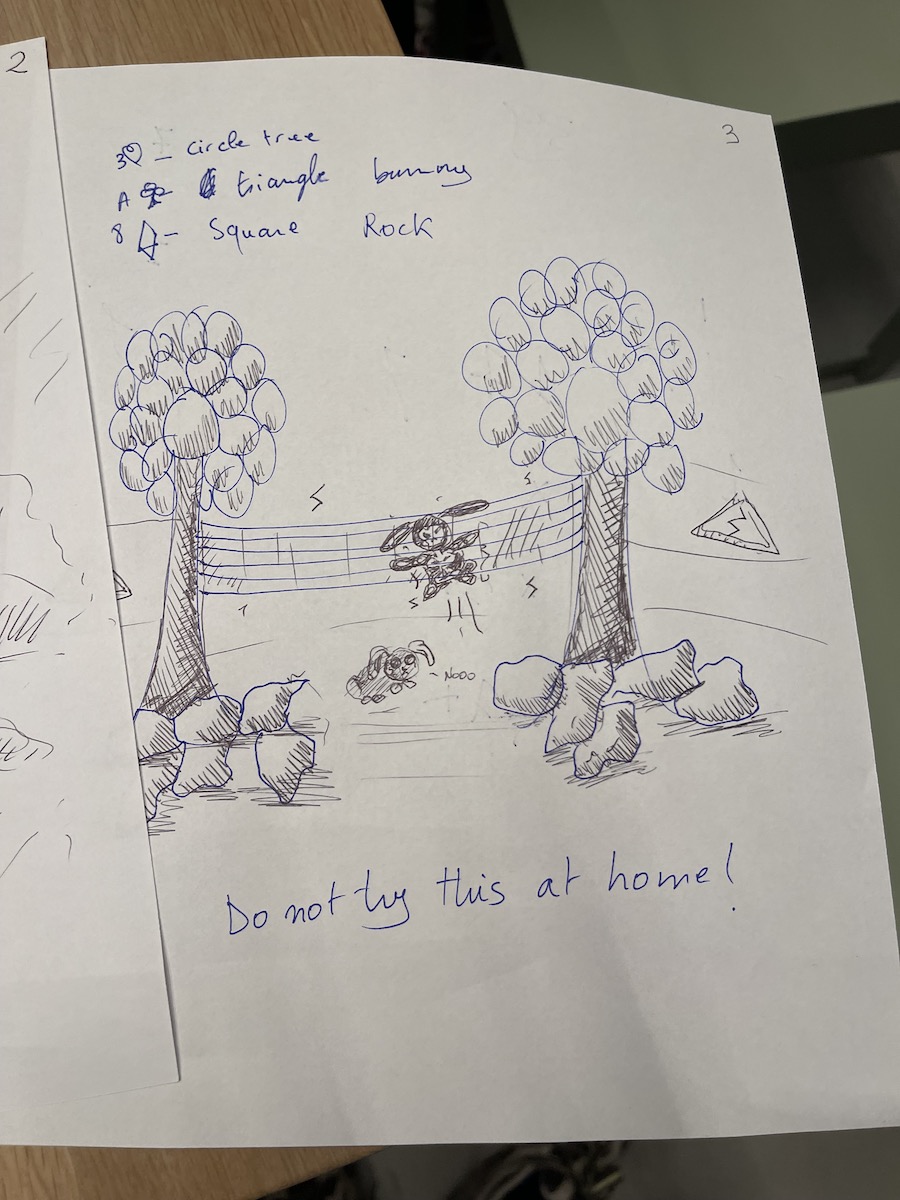 2
3
3♡ - circle tree
A ♧ triangle bunny
8 ◊ - Square Rock
- Nooo
Do not try this at home!